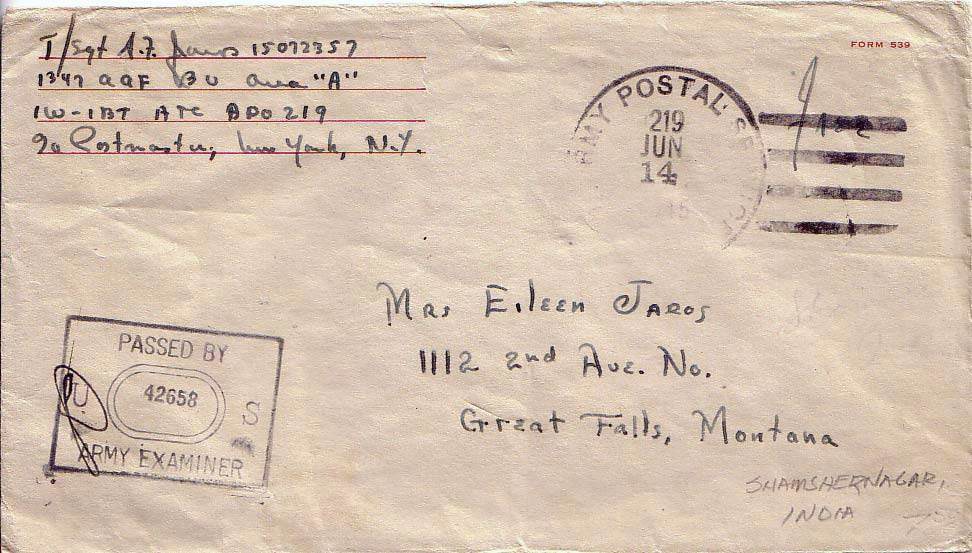 T/Sgt A.F. Jaros 15072357
1347 AAF BU Area "A"
IW-IBT ATC APO 219
℅ Postmaster, New York, N.Y.
FORM 539
ARMY POSTAL SE
219
JUN
14
Mrs Eileen Jaros
1112 2nd Ave. No.
Great Falls, Montana
PASSED BY
U. 42658 S
ARMY EXAMINER
SHAMSHERNAGAR,
INDIA